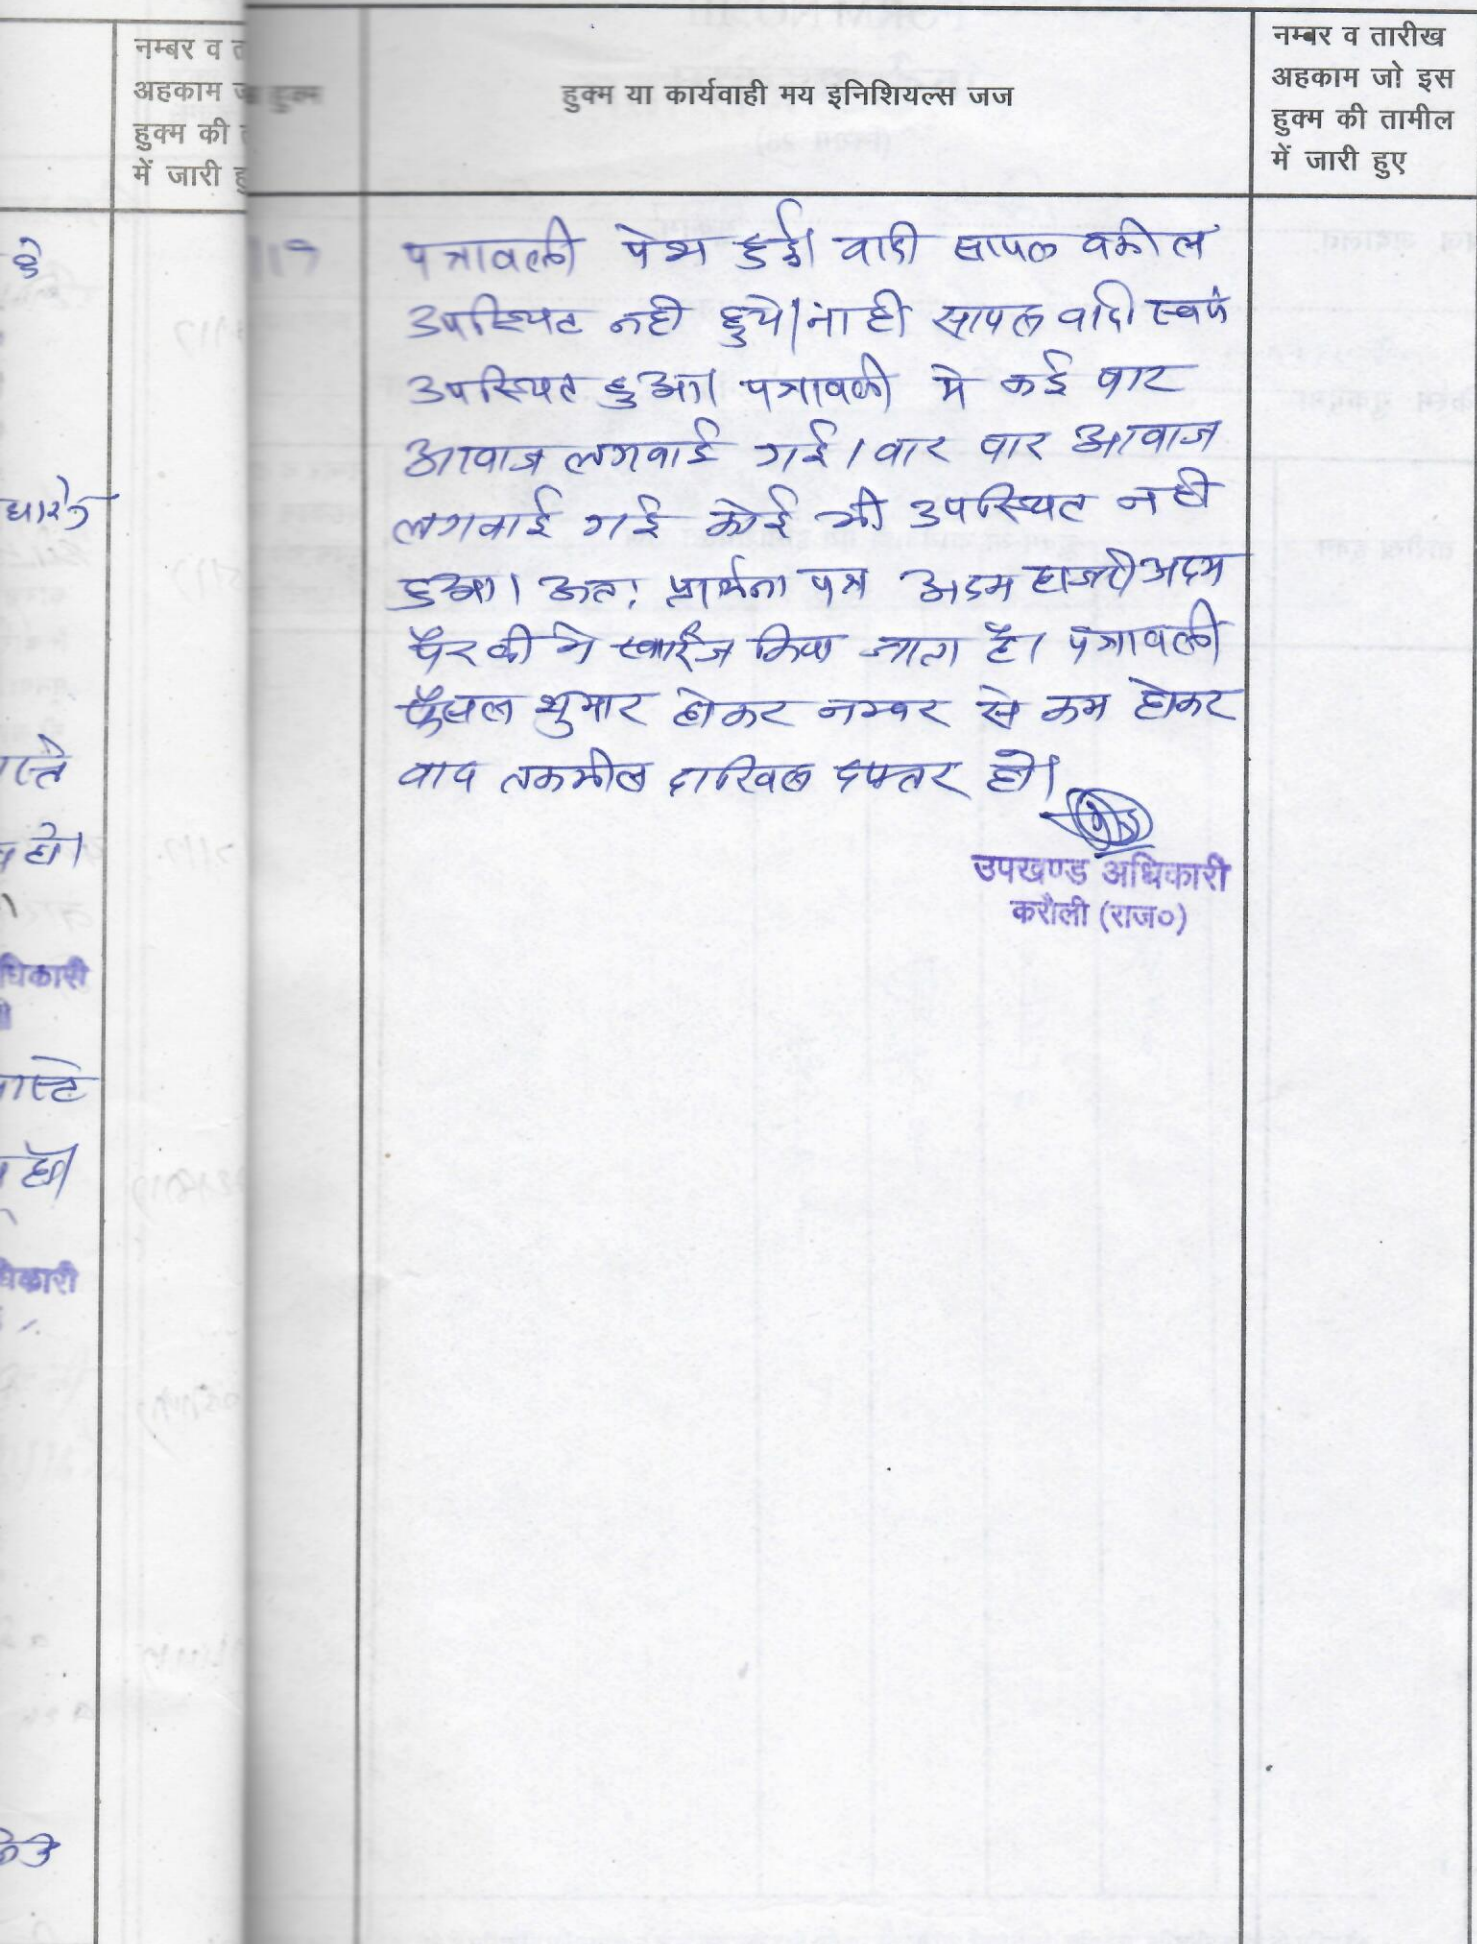 नम्बर व त
अहकाम ज
हुक्म की
में जारी हु
हुक्म
हुक्म या कार्यवाही मय इनिशियल्स जज
नम्बर व तारीख
अहकाम जो इस
हुक्म की तामील
में जारी हुए
पत्रावली पेश हुई। वादी सायल वकील
उपस्थित नही हुये। ना ही सायल वादी स्वयं
उपस्थित हुआ। पत्रावली मे कई बार
आवाज लगवाई गई। बार बार आवाज
लगवाई गई कोई भी उपस्थित नही
हुआ। अतः प्रार्थना पत्र अदम हाजरी अदम
पैरवी मे खारिज किया जाता है। पत्रावली
फैसल शुमार होकर नम्बर से कम होकर
बाद तकमील दाखिल दफ्तर हो।
उपखण्ड अधिकारी
करौली (राज०)
धिकारी
धिकारी